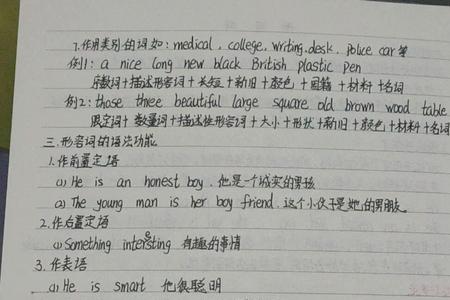 7.作用类别的词如:medical, college, writing desk, police car 等
例1: a nice long new black British plastic pen
序数词+描述形容词+长短+新旧+颜色+国籍+材料+名词
例2: those three beautiful large square old brown wood table
限定词+数量词+描述性形容词+大小+形状+新旧+颜色+材料+名词
三.形容词的语法功能
1.作前置定语
(1) He is an honest boy. 他是一个诚实的男孩
(2) The young man is her boy friend. 这个小伙子是她的男朋友.
2.作后置定语
(1) Something interesting 有趣的事情
3.作表语
(1) He is smart 他很聪明